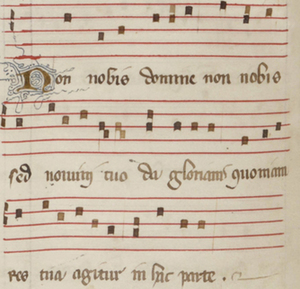 Non nobis domine non nobis
sed nomini tuo da gloriam quoniam
res tua agitur in hac parte .